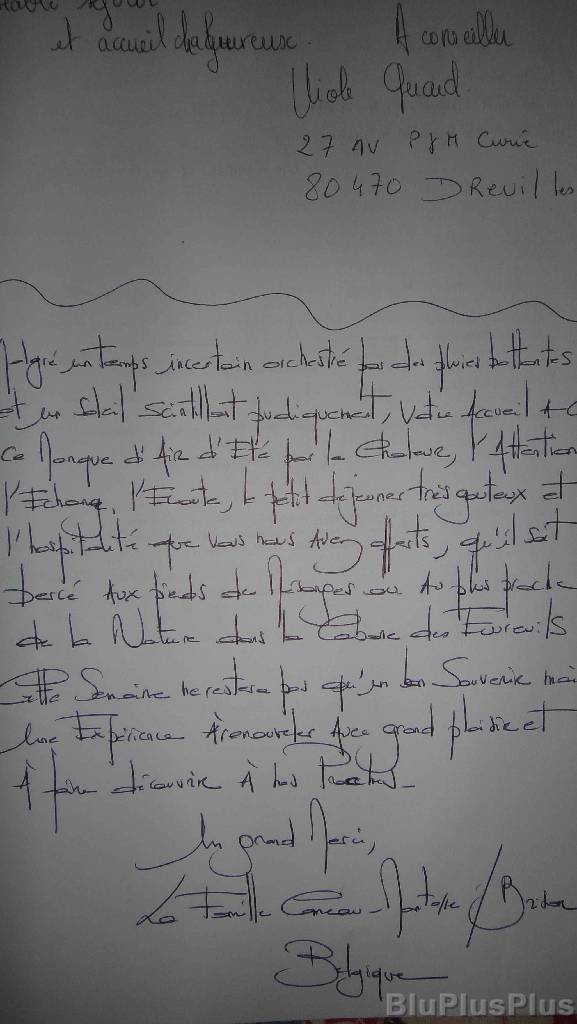 et accueil chaleureux. A conseiller
27 AV P & M Curie
80470 DREUIL les
Malgré un temps incertain orchestré par des pluies battantes
et un Soleil Scintillant pudiquement, Votre Accueil A
Ce Manque d'Air d'Eté par la Chaleur, l'Attention
l'Echange, l'Ecoute, le petit déjeuner très gouteux et
l'hospitalité que vous nous Avez offerts, qu'il soit
bercé Aux pieds de Mésanges ou Au plus proche
de la Nature dans la Cabane des Ecureuils
Cette Semaine ne restera pas qu'un bon Souvenir mais
Une Expérience À renouveler Avec grand plaisir et
À faire découvrir À nos Proches_
Un grand Merci,
La Famille
Belgique
BluPlusPlus